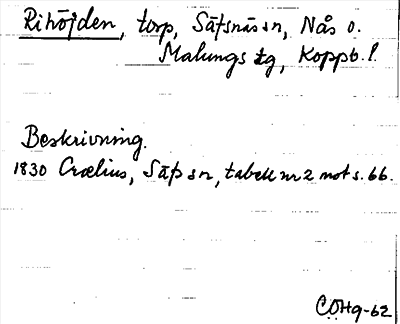 Rihöjden, torp, Säfsnäs sn, Nås o.
Malungs tg, Koppb. l.
Beskrivning.
1830 Crælius, Säfs sn, tabell nr 2 mot s. 66.
COHg-62